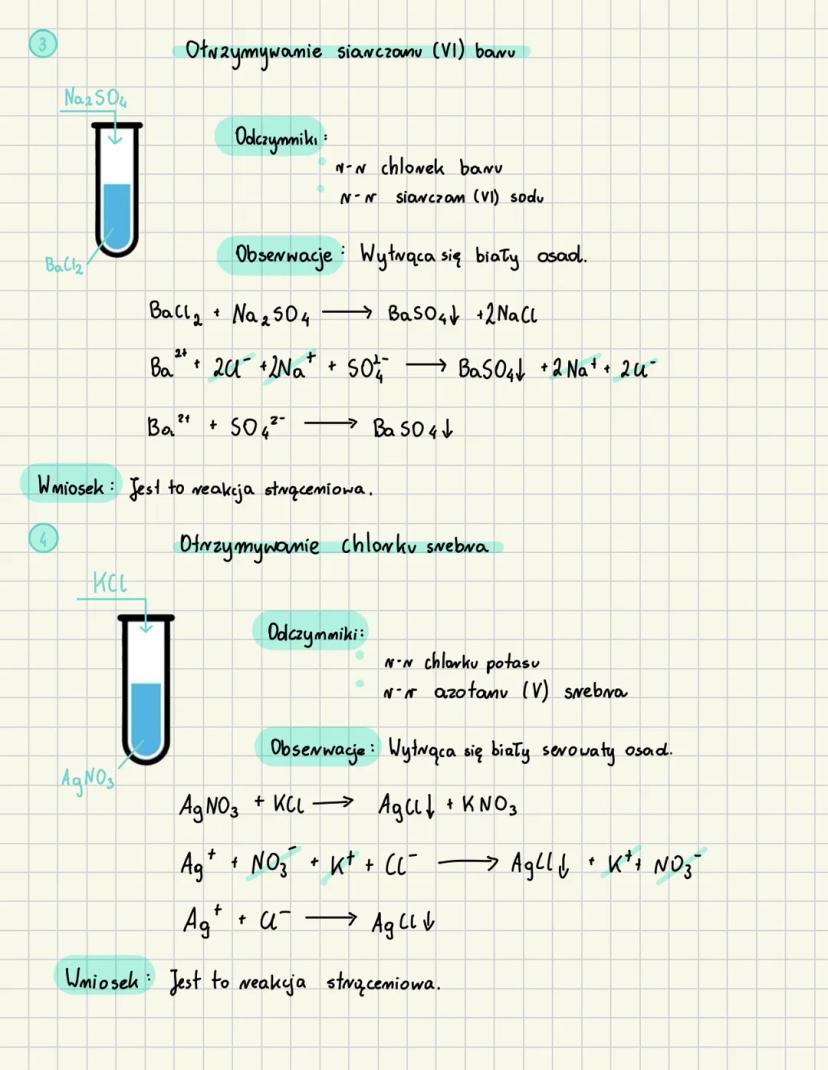 3
Otrzymywanie siarczanu (VI) baru
Na2SO4
Odczynniki:
r-r chlorek baru
r-r siarczan (VI) sodu
Obserwacje: Wytrąca się biały osad.
BaCl₂
BaCl₂ + Na₂SO₄ ⟶ BaSO₄↓ +2NaCl
Ba²⁺ + 2Cl⁻ +2Na⁺ + SO₄²⁻ ⟶ BaSO₄↓ +2Na⁺ + 2Cl⁻
Ba²⁺ + SO₄²⁻ ⟶ BaSO₄↓
Wniosek: Jest to reakcja strąceniowa.
4
Otrzymywanie chlorku srebra
KCl
Odczynniki:
r-r chlorku potasu
r-r azotanu (V) srebra
Obserwacje: Wytrąca się biały serowaty osad.
AgNO₃
AgNO₃ + KCl ⟶ AgCl↓ + KNO₃
Ag⁺ + NO₃⁻ + K⁺ + Cl⁻ ⟶ AgCl↓ + K⁺ + NO₃⁻
Ag⁺ + Cl⁻ ⟶ AgCl↓
Wniosek: Jest to reakcja strąceniowa.